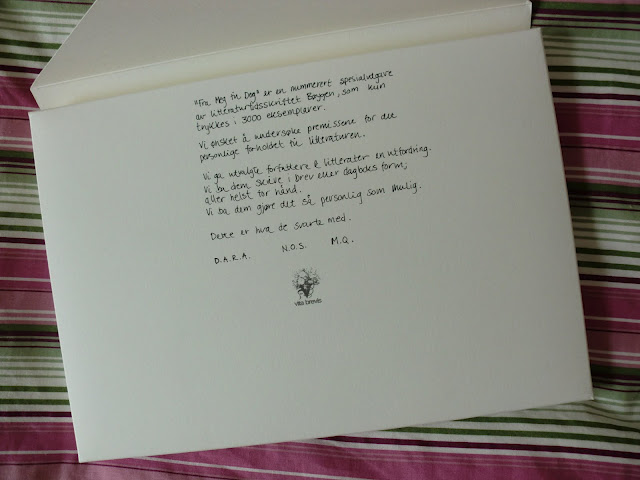 "Fra Meg til Deg" er en nummerert spesialutgave
av litteraturtidsskriftet Bøygen, som kun
trykkes i 3000 eksemplarer.
Vi ønsket å undersøke premissene for det
personlige forholdet til litteraturen.
Vi ga utvalgte forfattere & litterater en utfordring.
Vi ba dem skrive i brev eller dagboks form,
aller helst for hånd.
Vi ba dem gjøre det så personlig som mulig.
Dette er hva de svarte med.
D.A.R.A. N.O.S. M.Q.
vita brevis